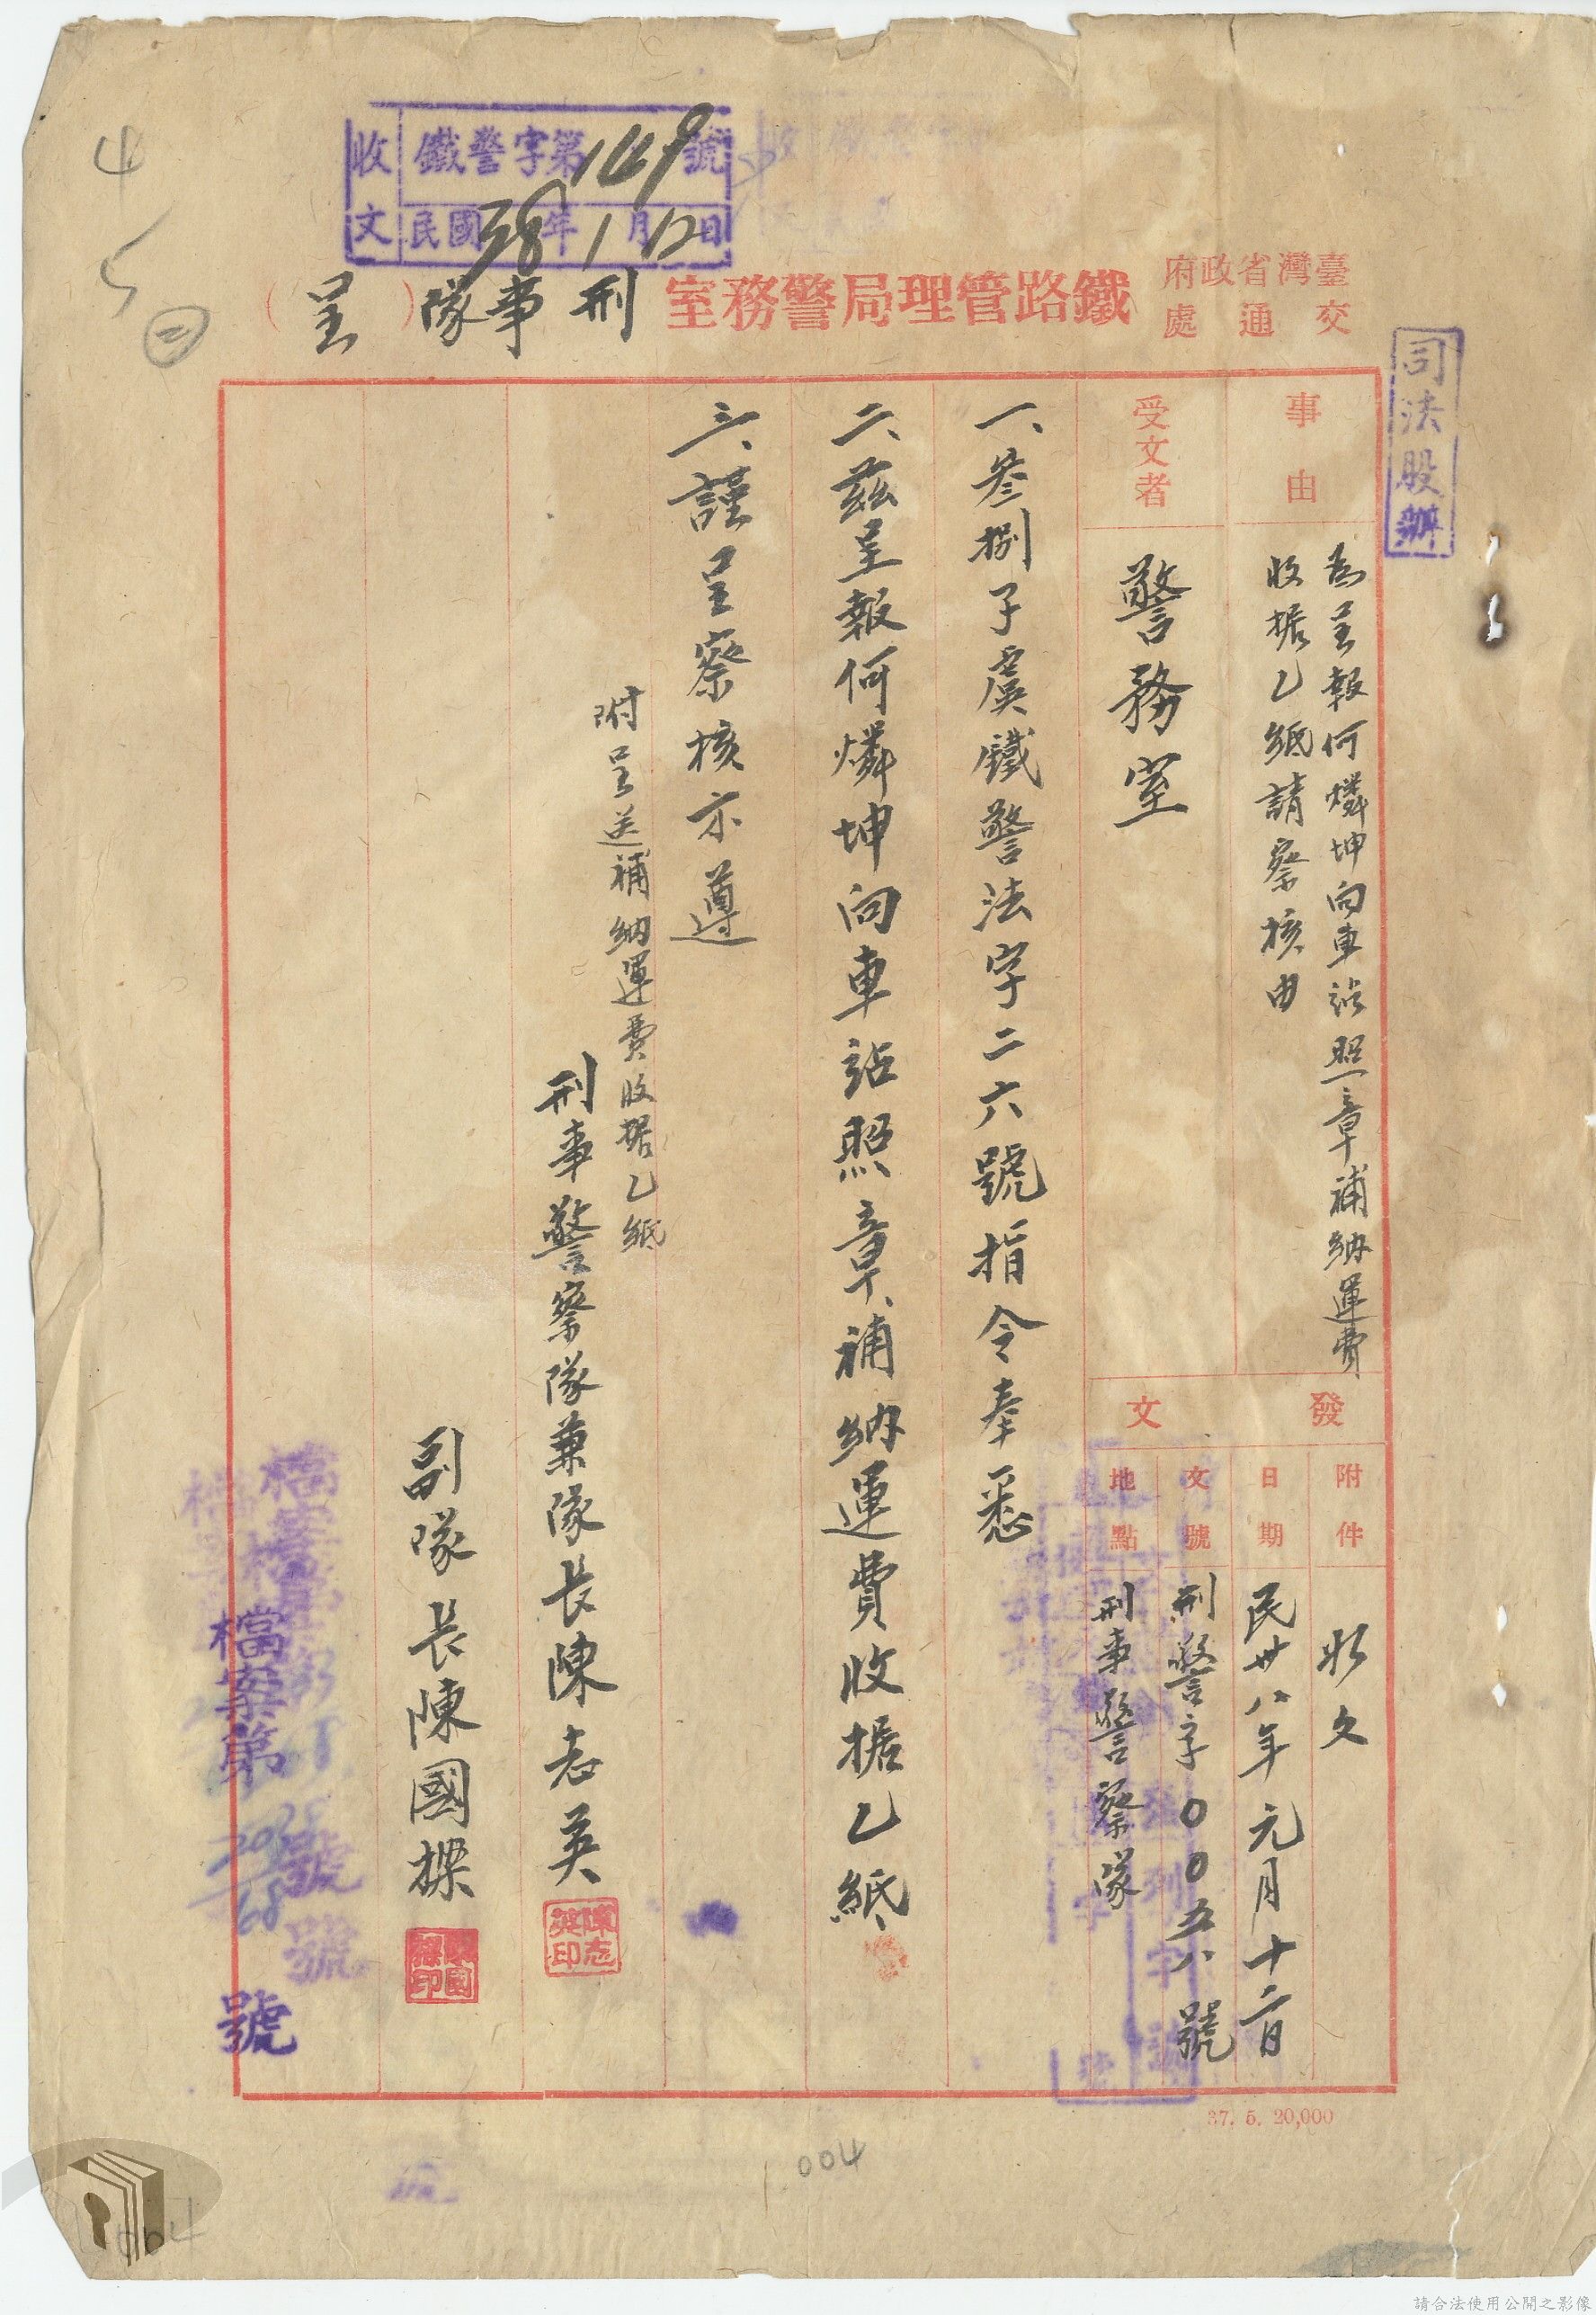 收文
鐵警字第149號
民國38年1月12日
臺灣省政府
交通處
鐵路管理局警務室
刑事隊
（呈）
司法股辦
事由
為呈報何燐坤向車站照章補納運費
收据乙紙請察核由
受文者
警務室
發文
附件
如文
日期
民卅八年元月十二日
文號
刑警字00五八號
地點
刑事警察隊
一、叁捌子虞鐵警法字二六號指令奉悉
二、茲呈報何燐坤向車站照章補納運費收据乙紙
三、謹呈察核示遵
附呈送補納運費收据乙紙
刑事警察隊兼隊長陳志英
陳志英印
副隊長陳國樑
陳國樑印
檔案第
號
37. 5. 20,000
004
請合法使用公開之影像